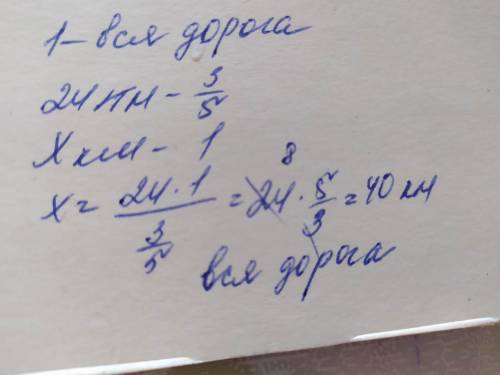 1 – вся дорога
24 км – 3/5
X км – 1
X = (24 · 1)/(3/5) = 24 · 5/3 = 40 км
8
вся дорога